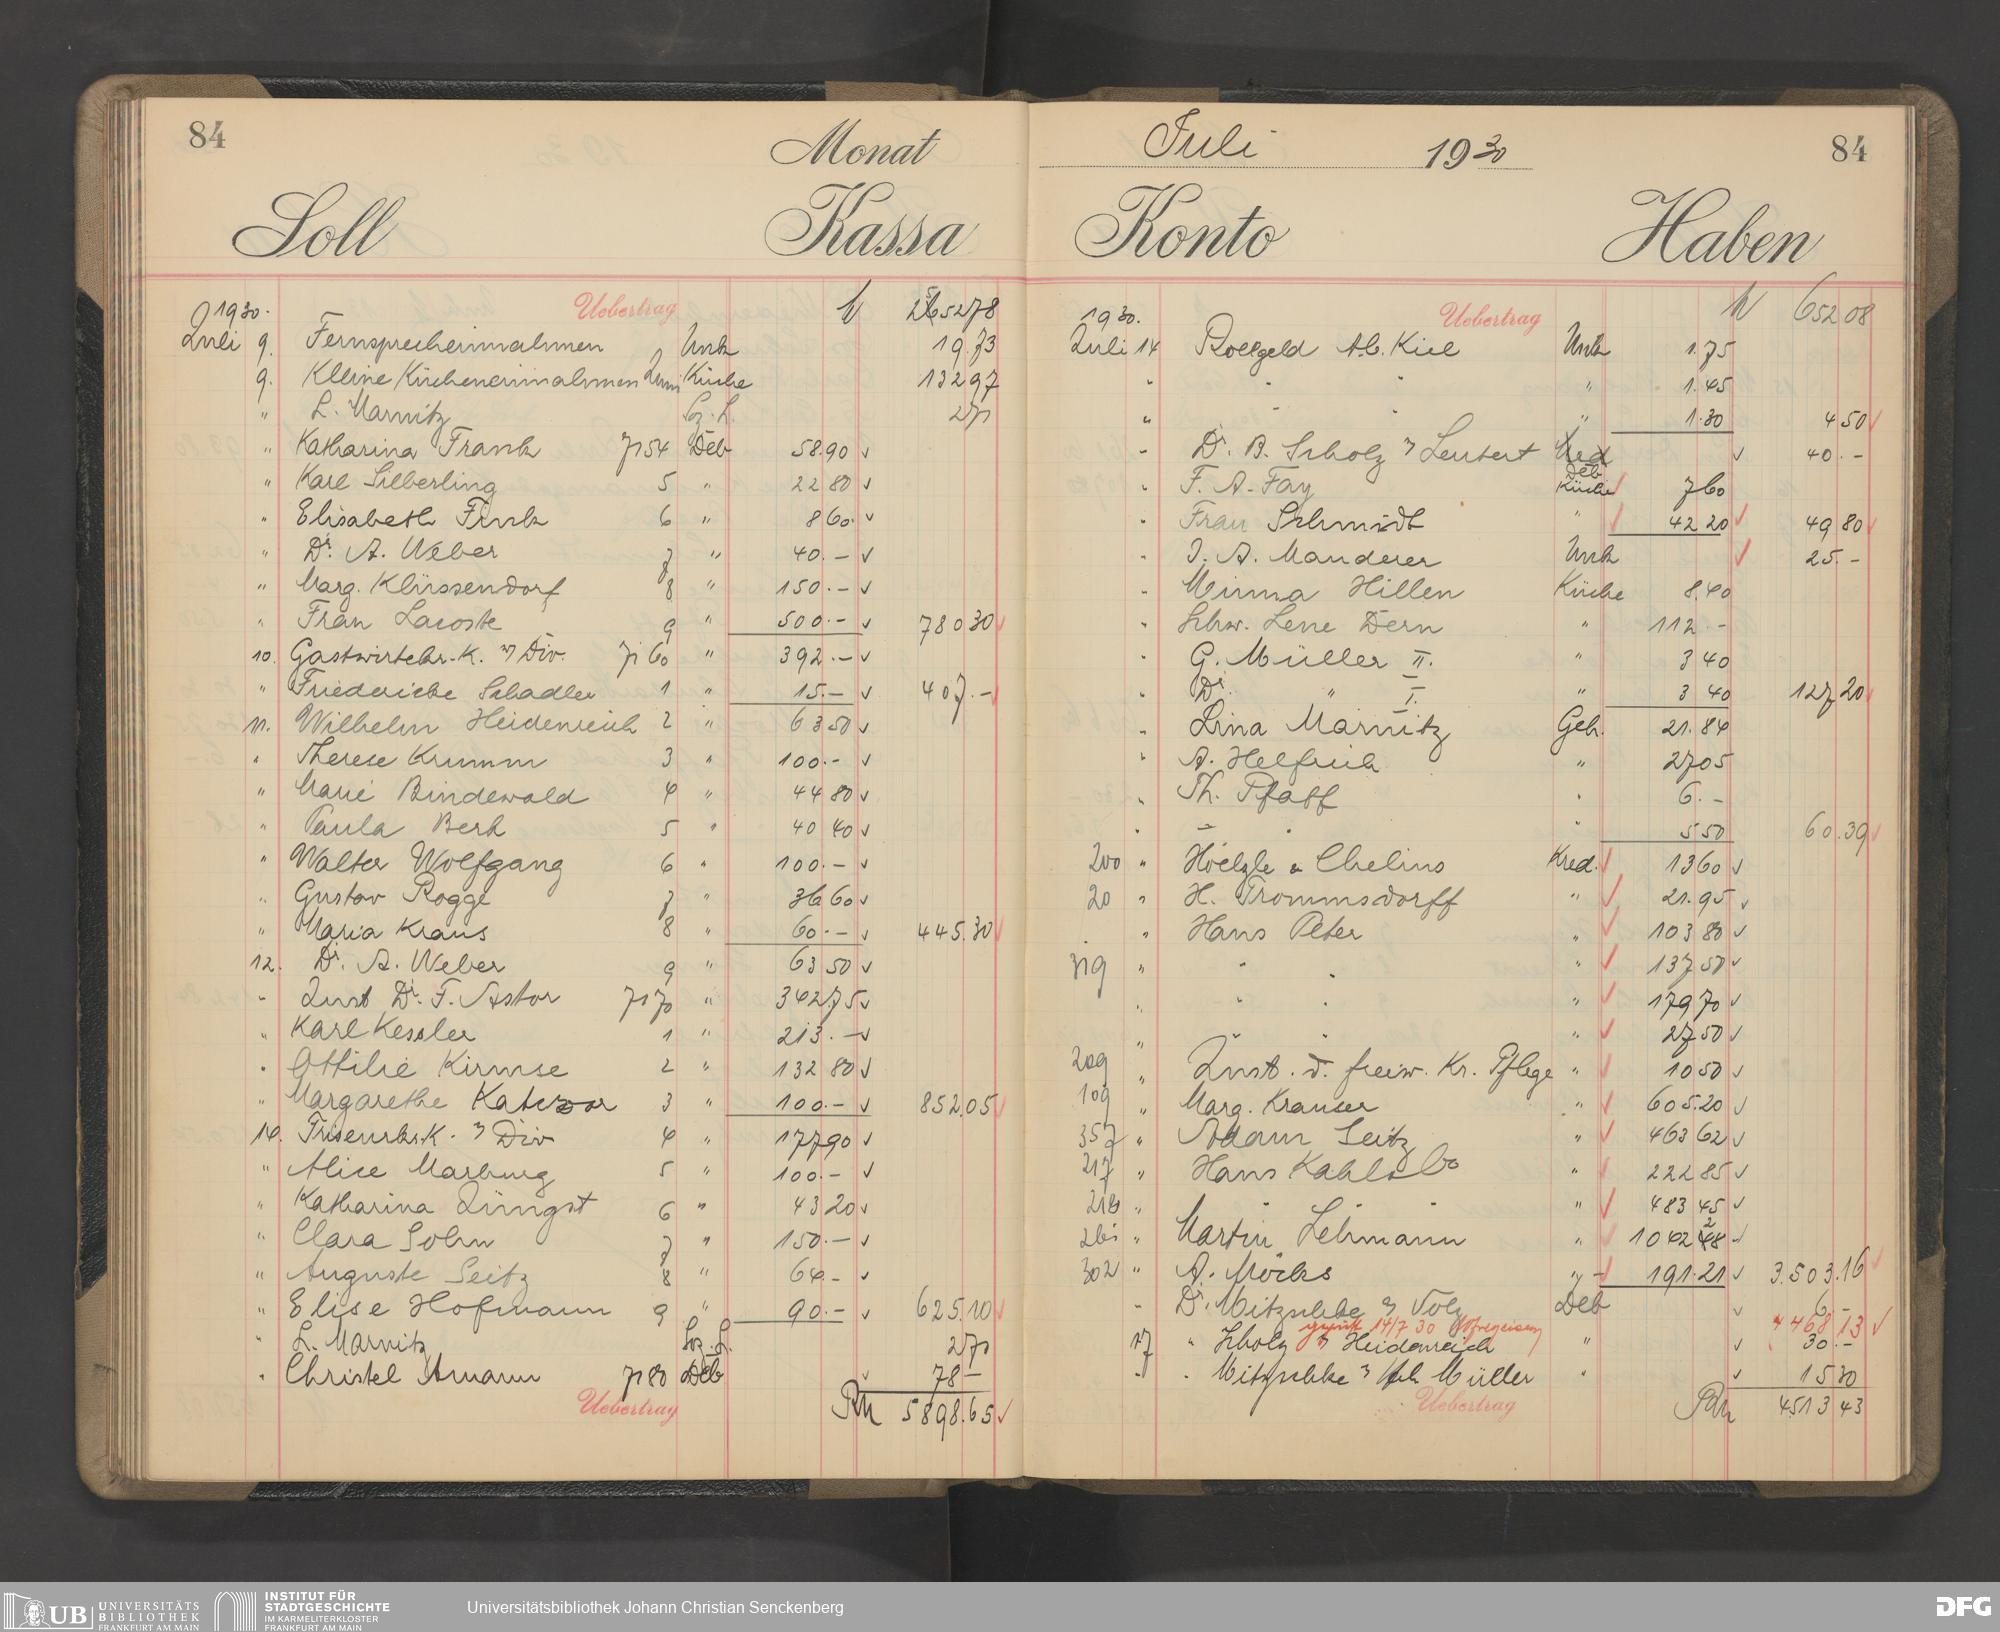 84
Monat
Soll Kassa
1930. Uebertrag M 2552 78
Juli 9. Fernsprecheinnahmen Unk 19.73
9. Kleine Kücheneinnahmen Juni Küche 132 97
" L. Marnitz Soz. L. 2 71
" Katharina Frank 7154 Deb 58.90
" Karl Silberling 5 " 22 80
" Elisabeth Fink 6 " 8 60
" Dr. A. Weber 7 " 40.-
" Marg. Klüssendorf 8 " 150.-
" Frau Lacoste 9 " 500.- 780 30
10. Gastwirtekr. K. Div. 7160 " 392.-
" Friedericke Schadler 1 " 15.- 407.-
11. Wilhelm Heidenreich 2 " 63 50
" Therese Krumm 3 " 100.-
" Marie Bindewald 4 " 44 80
" Paula Berk 5 " 40 40
" Walter Wolfgang 6 " 100.-
" Gustav Rogge 7 " 36 60
" Maria Kraus 8 " 60.- 445.30
12. Dr. A. Weber 9 " 63 50
" Dr. F. Astor 7170 " 342.75
" Karl Kessler 1 " 213.-
" Ottilie Kirmse 2 " 132 80
" Margarethe 3 " 100.- 852.05
14. Friseurkr. K. Div 4 " 177 90
" Alice Marburg 5 " 100.-
" Katharina Jüngst 6 " 43 20
" Clara Sohn 7 " 150.-
" Auguste Seitz 8 " 64.-
" Elise Hofmann 9 " 90.- 625.10
" L. Marnitz Soz. L. 2 71
" Christel Amann 7180 Deb 78 -
Uebertrag RM 5898.65
Juli 1930 84
Konto Haben
1930. Uebertrag M 652 08
Juli 14 Rollgeld Ab. Kiel Unk 1.75
" " " " 1.45
" " " " 1.30 4 50
" Dr. B. Scholz Leutert Deb 40.-
" F. A. Fay Küche 7 60
" Frau Schmidt " 42 20 49 80
" J. A. Manderer Unk 25.-
" Minna Hillen Küche 8.40
" Schw. Lene Dern " 112 -
" G. Müller II. " 3 40
" Dr. " I. " 3 40 127 20
" Lina Marnitz Geh. 21.84
" A. Helfrich " 27 05
" Th. Pfaff " 6.-
" " " " 5 50 60.39
200 " Hoelzle & Chelius Kred. 13 60
20 " H. Trommsdorff " 21.95
" Hans Peter " 103 80
319 " " " " 137 50
" " " 179 70
" " " 27 50
209 " Inst. d. freiw. Kr. Pflege " 10 50
109 " Marg. Krauser " 605.20
357 " Adam Seitz " 463 62
217 " Hans Kahl & Co " 222 85
218 " " " " 483 45
261 " Martin Lehmann " 1042
302 " A. Möcks " 191.21 3.503.16
" Dr. Mitzschke Volz Deb 6.-
14/7 30 4468 13
17 " Scholz Heidenreich " 30.-
" " Mitzschke Müller " 15 30
Uebertrag RM 4513 43
UB UNIVERSITÄTS BIBLIOTHEK FRANKFURT AM MAIN
INSTITUT FÜR STADTGESCHICHTE IM KARMELITERKLOSTER FRANKFURT AM MAIN
Universitätsbibliothek Johann Christian Senckenberg
DFG